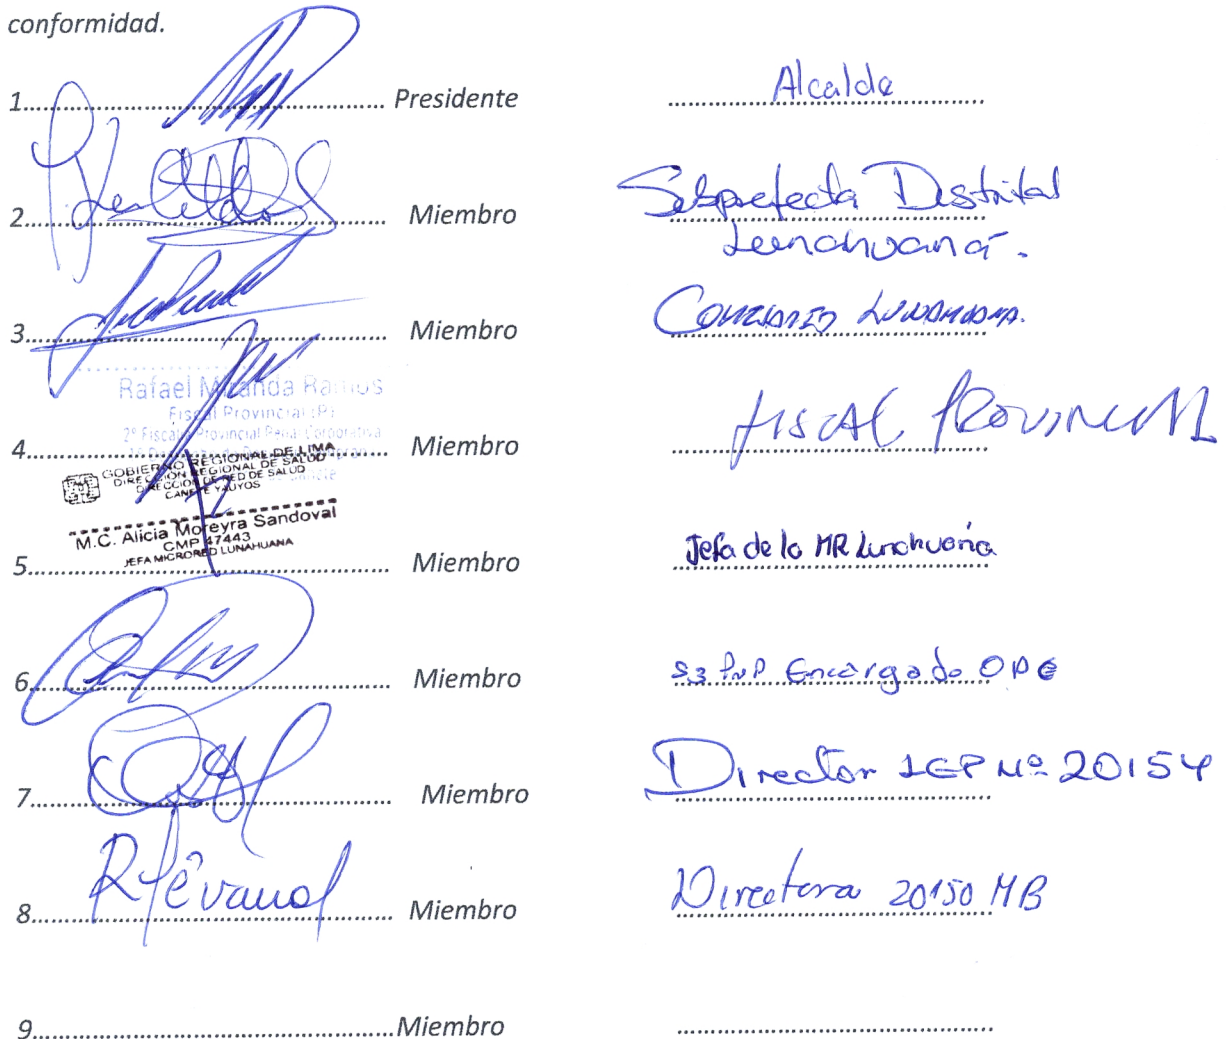 conformidad.
1. Presidente Alcalde
2. Miembro Subprefecta Distrital
Lunahuaná.
3. Miembro Comisario Lunahuaná.
Rafael Miranda Ramos
Fiscal Provincial (P)
2º Fiscalía Provincial Penal Corporativa
4. Miembro FISCAL PROVINCIAL
GOBIERNO REGIONAL DE LIMA
DIRECCION REGIONAL DE SALUD
DIRECCION DE RED DE SALUD
CAÑETE YAUYOS
M.C. Alicia Moreyra Sandoval
CMP 47443
JEFA MICRORED LUNAHUANA
5. Miembro Jefa de la MR Lunahuaná
6. Miembro S3 PNP Encargado OPC
7. Miembro Director IEP Nº 20154
8. Miembro Directora 20150 MB
9. Miembro